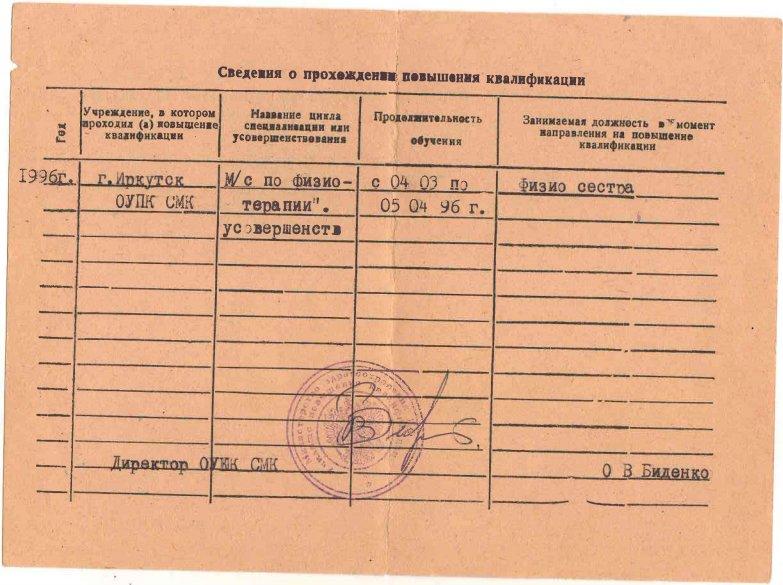 Сведения о прохождении повышения квалификации
Год
Учреждение, в котором
проходил (а) повышение
квалификации
Название цикла
специализации или
усовершенствования
Продолжительность
обучения
Занимаемая должность в момент
направления на повышение
квалификации
1996г.
г.Иркутск
ОУПК СМК
М/с по физио-
терапии".
усовершенств
с 04 03 по
05 04 96 г.
физио сестра
Директор ОУПК СМК
О В Биденко